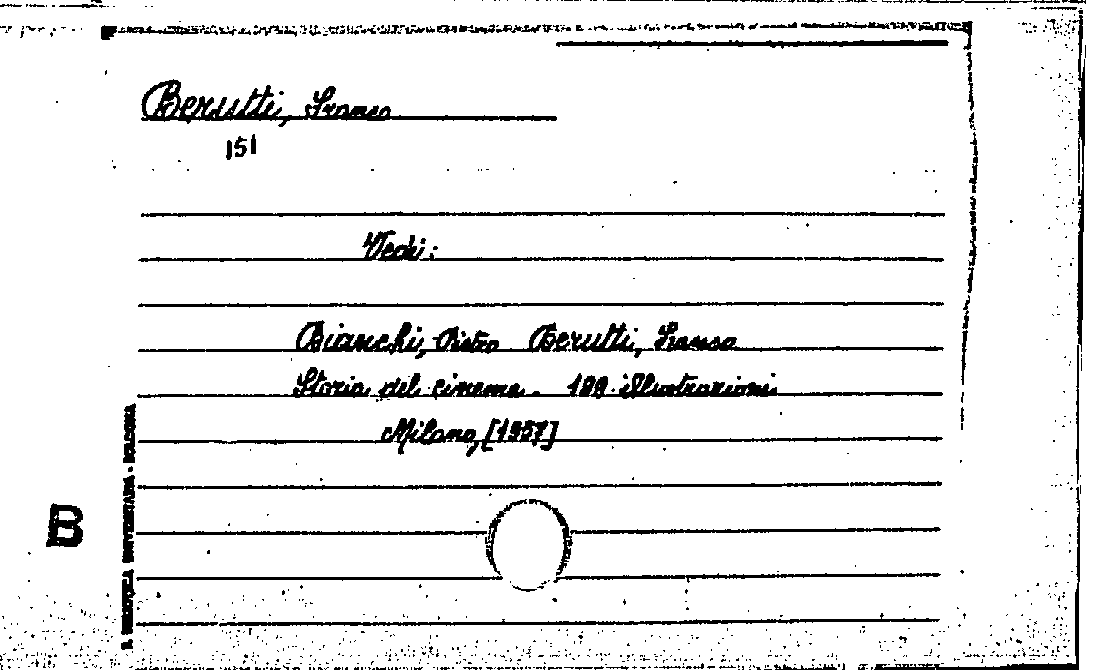 Berutti, Franco
151
Vedi:
Bianchi, Pietro Berutti, Franco
Storia del cinema. 100 illustrazioni
Milano, [1957]
B
R. BIBLIOTECA UNIVERSITARIA - BOLOGNA